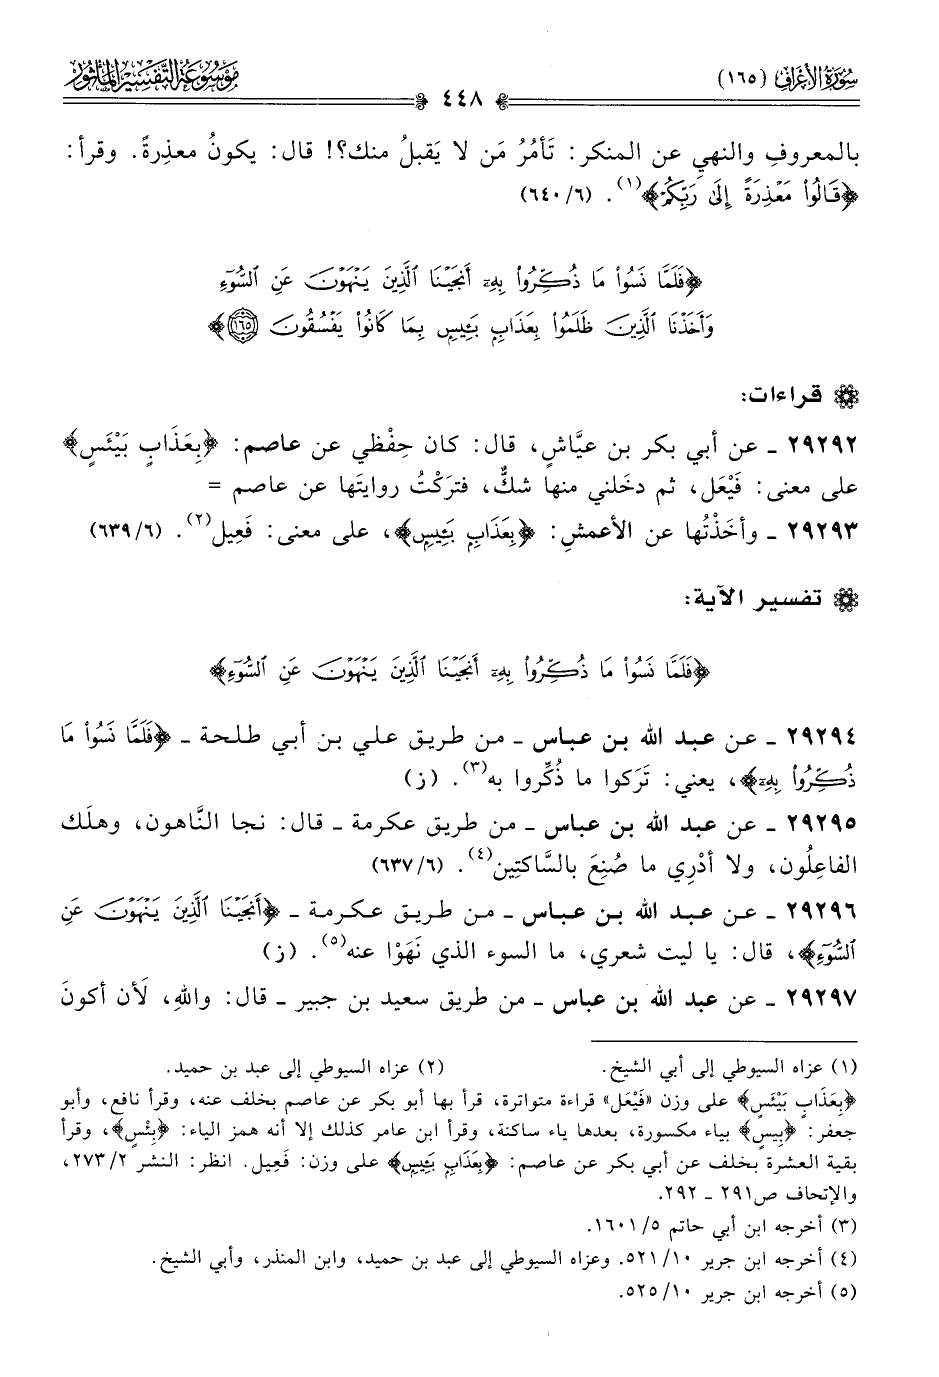 سُورَةُ الأَعْرَاف (١٦٥)
٤٤٨
مَوْسُوعَة التَّفْسِير المَأْثُور
بالمعروفِ والنهيِ عن المنكر: تَأمُرُ مَن لا يَقبلُ منك؟! قال: يكونُ معذِرةً. وقرأ:
﴿قَالُوا۟ مَعْذِرَةً إِلَىٰ رَبِّكُمْ﴾(١). (٦/ ٦٤٠)
﴿فَلَمَّا نَسُوا۟ مَا ذُكِّرُوا۟ بِهِۦٓ أَنجَيْنَا ٱلَّذِينَ يَنْهَوْنَ عَنِ ٱلسُّوٓءِ
وَأَخَذْنَا ٱلَّذِينَ ظَلَمُوا۟ بِعَذَابٍۭ بَـِٔيسٍۭ بِمَا كَانُوا۟ يَفْسُقُونَ ١٦٥﴾
قراءات:
٢٩٢٩٢ ـ عن أبي بكر بن عيَّاشٍ، قال: كان حِفْظي عن عاصم: ﴿بِعَذَابٍ بَيْئَسٍ﴾
على معنى: فَيْعَل، ثم دخَلني منها شكٌّ، فتركْتُ روايتَها عن عاصم =
٢٩٢٩٣ ـ وأخَذْتُها عن الأعمشِ: ﴿بِعَذَابٍۭ بَـِٔيسٍۭ﴾، على معنى: فَعِيل(٢). (٦/ ٦٣٩)
تفسير الآية:
﴿فَلَمَّا نَسُوا۟ مَا ذُكِّرُوا۟ بِهِۦٓ أَنجَيْنَا ٱلَّذِينَ يَنْهَوْنَ عَنِ ٱلسُّوٓءِ﴾
٢٩٢٩٤ ـ عن عبد الله بن عباس ـ من طريق علي بن أبي طلحة ـ ﴿فَلَمَّا نَسُوا۟ مَا
ذُكِّرُوا۟ بِهِۦٓ﴾، يعني: تَرَكوا ما ذُكِّروا به(٣). (ز)
٢٩٢٩٥ ـ عن عبد الله بن عباس ـ من طريق عكرمة ـ قال: نجا النَّاهون، وهلَك
الفاعِلُون، ولا أدْرِي ما صُنِعَ بالسَّاكتِين(٤). (٦/ ٦٣٧)
٢٩٢٩٦ ـ عن عبد الله بن عباس ـ من طريق عكرمة ـ ﴿أَنجَيْنَا ٱلَّذِينَ يَنْهَوْنَ عَنِ
ٱلسُّوٓءِ﴾، قال: يا ليت شعري، ما السوء الذي نَهَوْا عنه(٥). (ز)
٢٩٢٩٧ ـ عن عبد الله بن عباس ـ من طريق سعيد بن جبير ـ قال: واللهِ، لَأن أكونَ
(١) عزاه السيوطي إلى أبي الشيخ. (٢) عزاه السيوطي إلى عبد بن حميد.
﴿بِعَذَابٍ بَيْئَسٍ﴾ على وزن «فَيْعَل» قراءة متواترة، قرأ بها أبو بكر عن عاصم بخلف عنه، وقرأ نافع، وأبو
جعفر: ﴿بِيسٍ﴾ بياء مكسورة، بعدها ياء ساكنة، وقرأ ابن عامر كذلك إلا أنه همز الياء: ﴿بِئْسٍ﴾، وقرأ
بقية العشرة بخلف عن أبي بكر عن عاصم: ﴿بِعَذَابٍۭ بَـِٔيسٍۭ﴾ على وزن: فَعِيل. انظر: النشر ٢/ ٢٧٣،
والإتحاف ص٢٩١ ـ ٢٩٢.
(٣) أخرجه ابن أبي حاتم ٥/ ١٦٠١.
(٤) أخرجه ابن جرير ١٠/ ٥٢١. وعزاه السيوطي إلى عبد بن حميد، وابن المنذر، وأبي الشيخ.
(٥) أخرجه ابن جرير ١٠/ ٥٢٥.